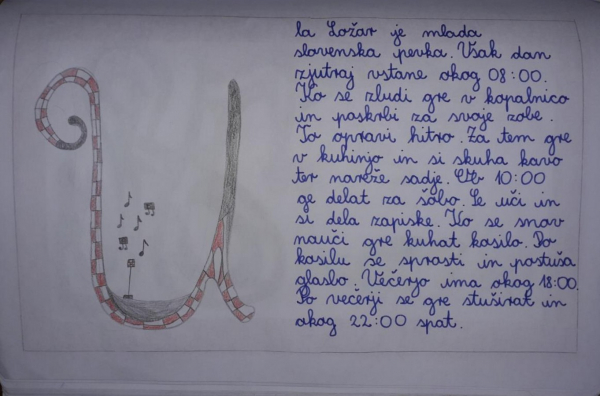 la Ložar je mlada
slovenska pevka. Vsak dan
zjutraj vstane okog 08:00.
Ko se zludi gre v kopalnico
in poskrbi za svoje zobe.
To opravi hitro. Za tem gre
v kuhinjo in si skuha kavo
ter nareže sadje. Ob 10:00
ge delat za šolo. Se uči in
si dela zapiske. Ko se snov
nauči gre kuhat kosilo. Po
kosilu se sprosti in postuša
glasbo. Večerjo ima okog 18:00.
Po večerji se gre stuširat in
okog 22:00 spat.